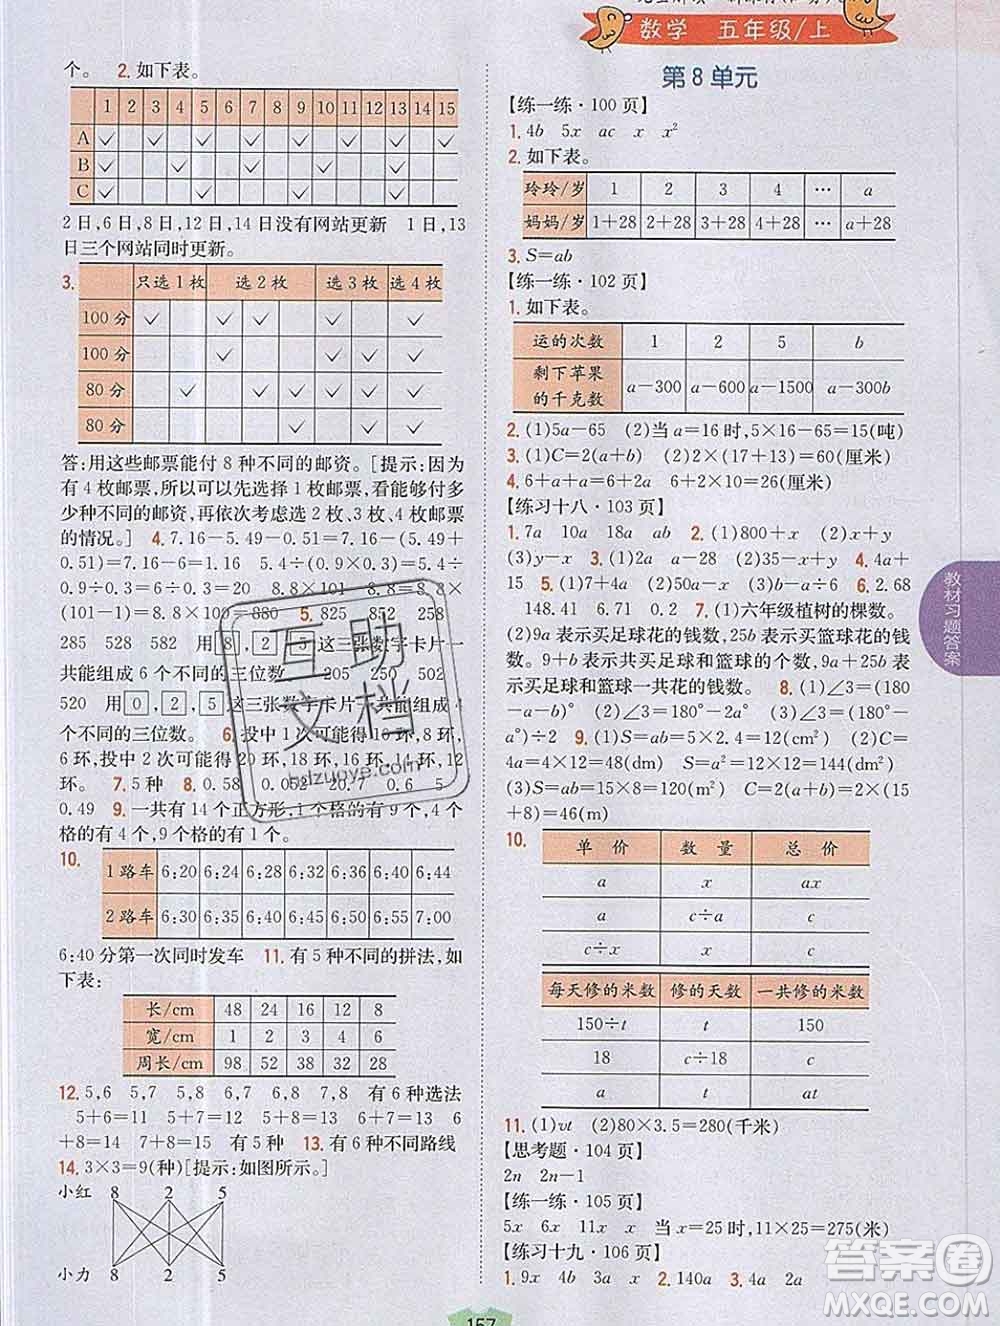 数学 五年级/上
个。 2.如下表。
1 2 3 4 5 6 7 8 9 10 11 12 13 14 15
A ✓ ✓ ✓ ✓ ✓ ✓ ✓ ✓
B ✓ ✓ ✓ ✓ ✓
C ✓ ✓ ✓ ✓ ✓
2日,6日,8日,12日,14日没有网站更新 1日,13
日三个网站同时更新。
3. 只选1枚 选2枚 选3枚 选4枚
100分 ✓ ✓ ✓ ✓ ✓ ✓
100分 ✓ ✓ ✓ ✓
80分 ✓ ✓ ✓ ✓ ✓
80分 ✓ ✓ ✓
答:用这些邮票能付8种不同的邮资。[提示:因为
有4枚邮票,所以可以先选择1枚邮票,看能够付多
少种不同的邮资,再依次考虑选2枚、3枚、4枚邮票
的情况。] 4.7.16-5.49-0.51=7.16-(5.49+
0.51)=7.16-6=1.16 5.4÷(0.6×0.9)=5.4÷
0.9÷0.6=6÷0.6=10 8.8×101-8.8=8.8×
(101-1)=8.8×100=880 5.825 852 258
285 528 582 用8,2,5这三张数字卡片一
共能组成6个不同的三位数。 205 250 502
520 用0,2,5这三张数字卡片一共能组成4
个不同的三位数。 6.投中1次可能得10环,8环,
6环,投中两次可能得20环,18环,16环,14环,
12环。 7.5种 8.0.58 0.24 20 0.6 5
0.49 9.一共有14个正方形,1个格的有9个,4个
格的有4个,9个格的有1个。
10. 1路车 6:20 6:24 6:28 6:32 6:36 6:40 6:44
2路车 6:30 6:35 6:40 6:45 6:50 6:55 7:00
6:40分第一次同时发车 11.有5种不同的拼法,如
下表:
长/cm 48 24 16 12 8
宽/cm 1 2 3 4 6
周长/cm 98 52 38 32 28
12.5,6 5,7 5,8 6,7 6,8 7,8 有6种选法
5+6=11 5+7=12 5+8=13 6+7=13 6
+8=14 7+8=15 有5种 13.有6种不同路线
14.3×3=9(种)[提示:如图所示。]
小红 8 2 5
小力 8 2 5
第8单元
【练一练·100页】
1.4b 5x ac x x²
2.如下表。
玲玲/岁 1 2 3 4 … a
妈妈/岁 1+28 2+28 3+28 4+28 … a+28
3.S=ab
【练一练·102页】
1.如下表。
运的次数 1 2 5 b
剩下苹果的千克数 a-300 a-600 a-1500 a-300b
2.(1)5a-65 (2)当a=16时,5×16-65=15(吨)
3.(1)C=2(a+b) (2)2×(17+13)=60(厘米)
4.6+a+a=6+2a 6+2×9=24(厘米)
【练习十八·103页】
1.7a 10a 18a ab 2.(1)800+x (2)x+y
(3)y-x 3.(1)2a a-28 (2)35-x 4.4a+
15 5.(1)7+4a (2)60-7x (3)a-b÷6 6.2.68
148.41 6.71 0.2 7.(1)六年级植树的棵数。
(2)9a表示买足球花的钱数,25b表示买篮球花的钱
数。9+b表示共买足球和篮球的个数,9a+25b表示
买足球和篮球一共花的钱数。 8.(1)∠3=(180-a
-b)° (2)∠3=(180-2a)° (3)∠3=
9.(1)(2)C=
4a=4×12=48(dm) S=a²=12×12=144(dm²)
(3)S=ab=15×8=120(m²) C=2(a+b)=2×(15
+8)=46(m)
10. 单价 数量 总价
a x ax
a c÷a c
c÷x x c
每天修的米数 修的天数 一共修的米数
150÷t t 150
18 c÷18 c
a t at
11.(1)vt (2)80×3.5=280(千米)
【思考题·104页】
2n 2n-1
【练一练·105页】
5x 6x 11x x 当x=25时,11×25=275(米)
【练习十九·106页】
1.9x 4b 3a x 2.140a 3.4a 2a
教材习题答案
157
互助文档
bdzuoye.com
答案圈
MXQE.COM